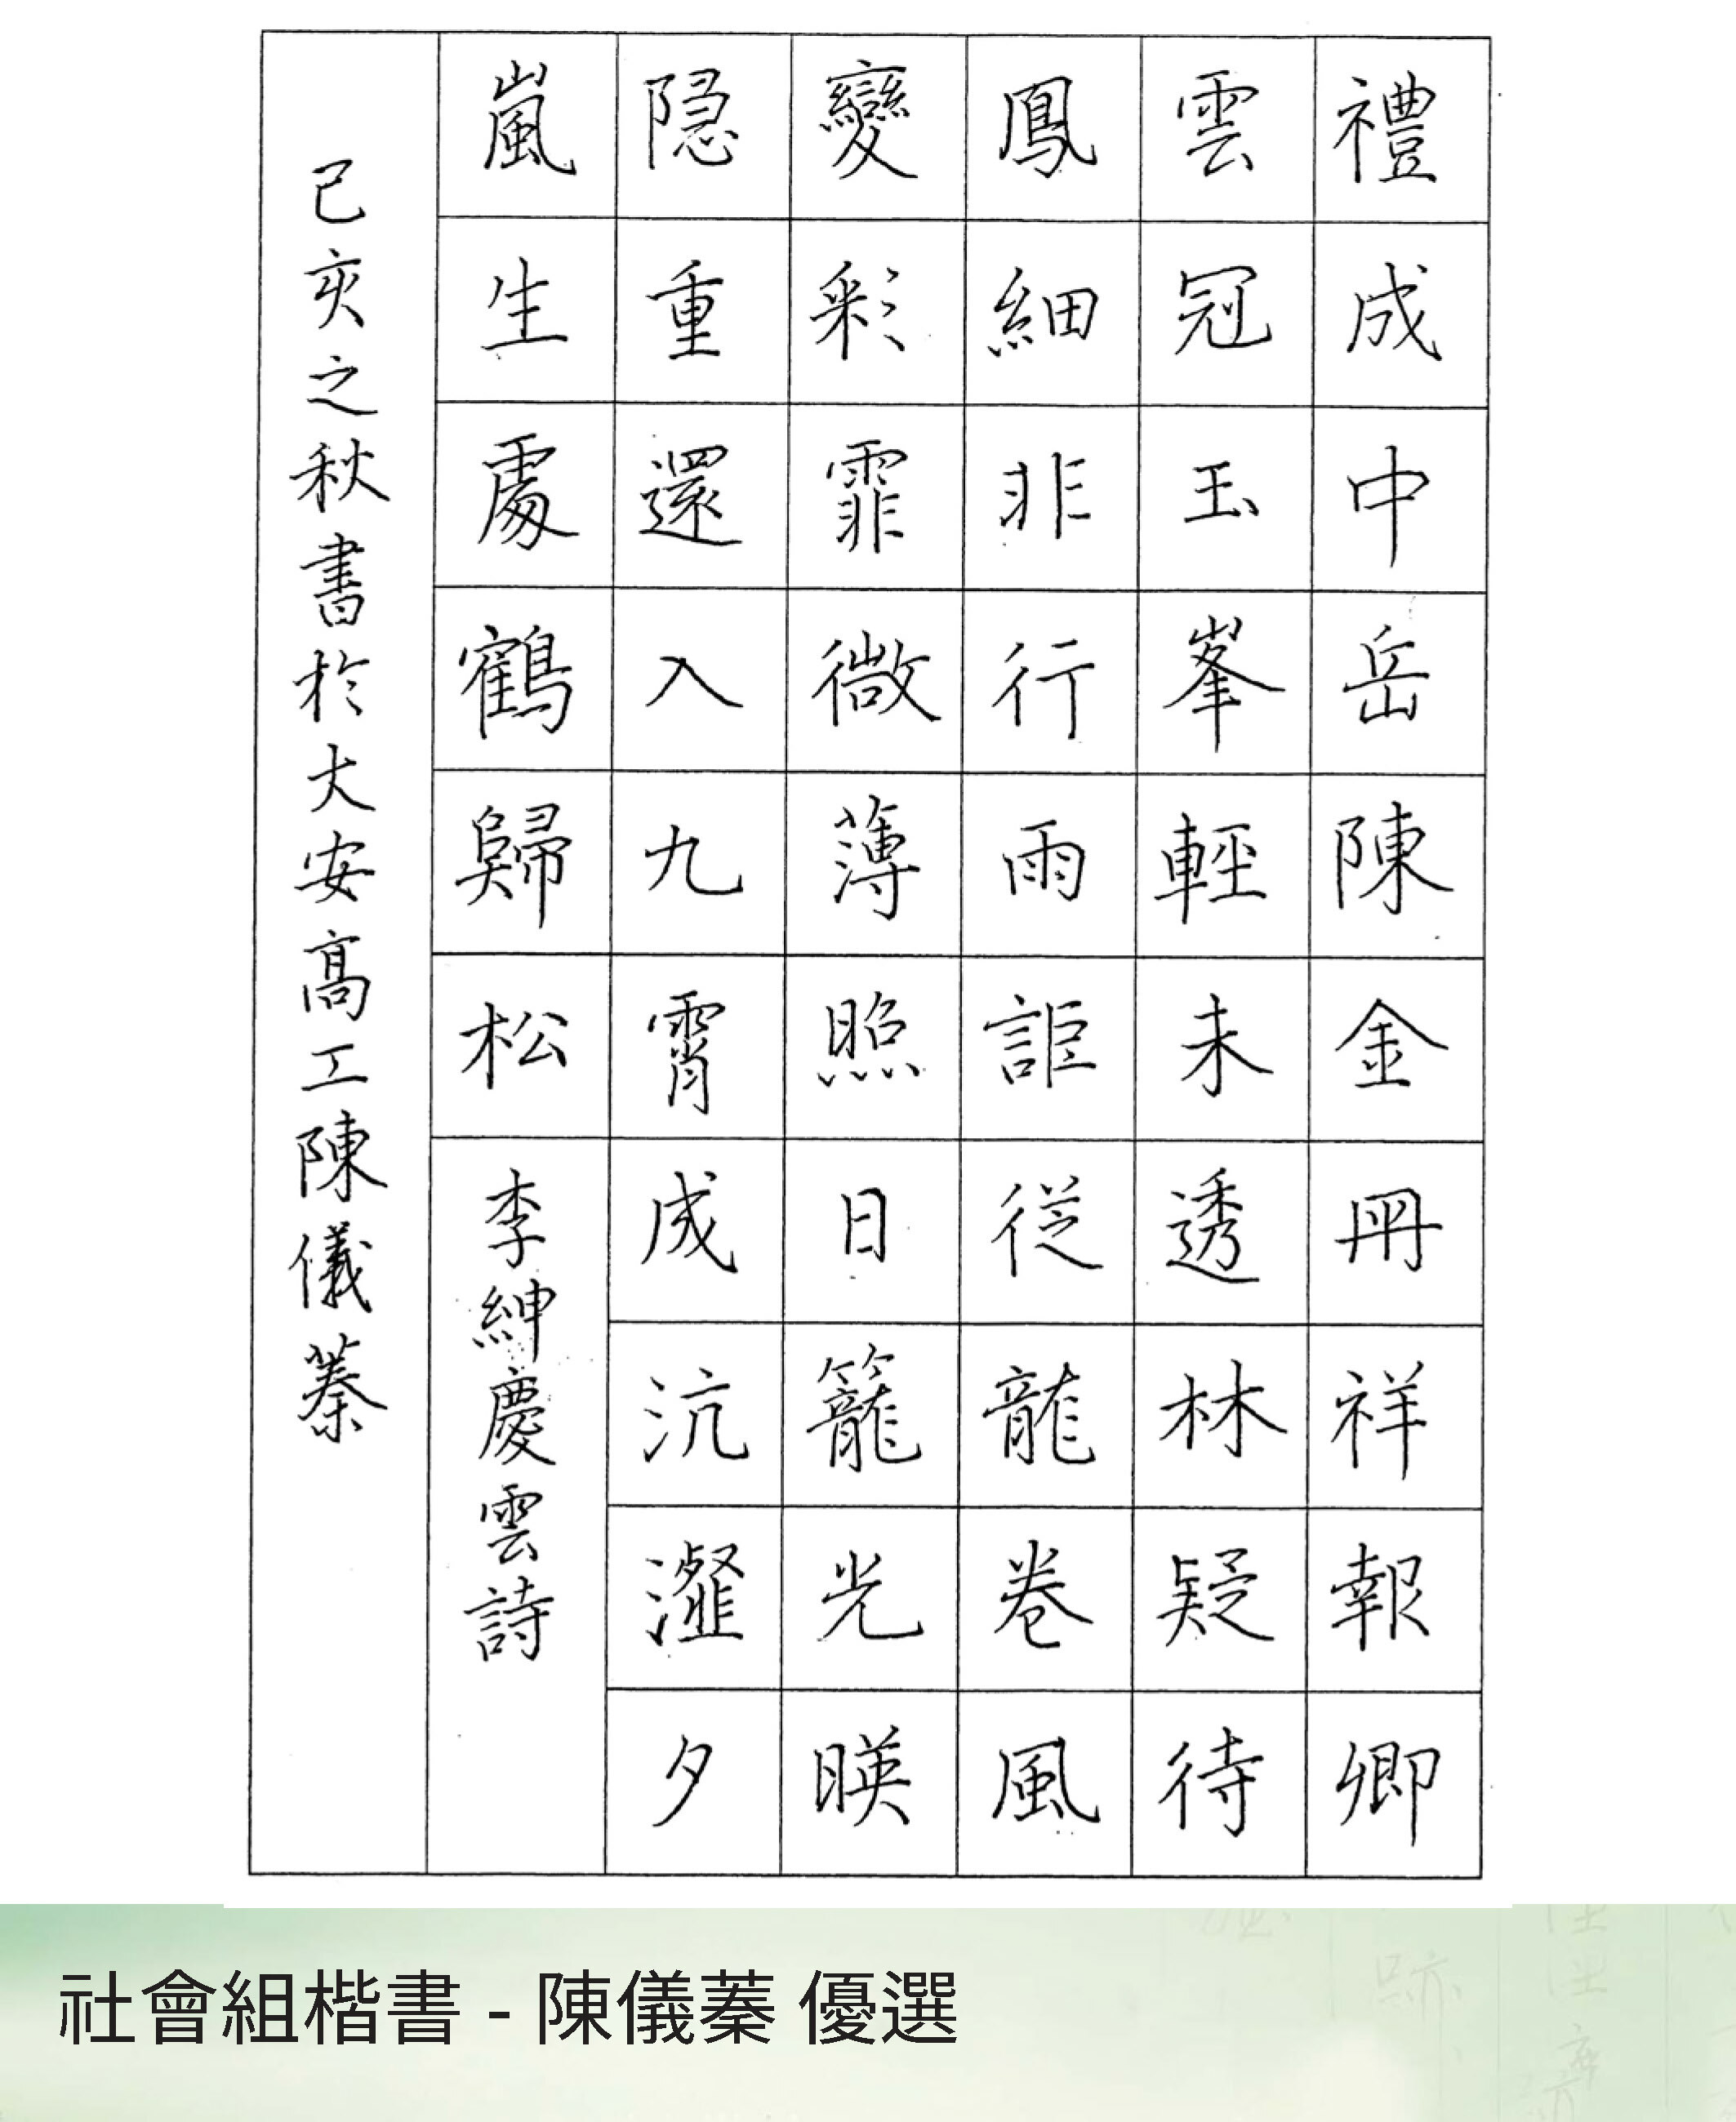 禮成中岳陳金冊祥報卿
雲冠玉峯輕未透林疑待
鳳細非行雨詎從龍卷風
變彩霏微薄照日籠光暎
隱重還入九霄成沆瀣夕
嵐生處鶴歸松 李紳慶雲詩
己亥之秋書於大安高工陳儀蓁
社會組楷書 - 陳儀蓁 優選